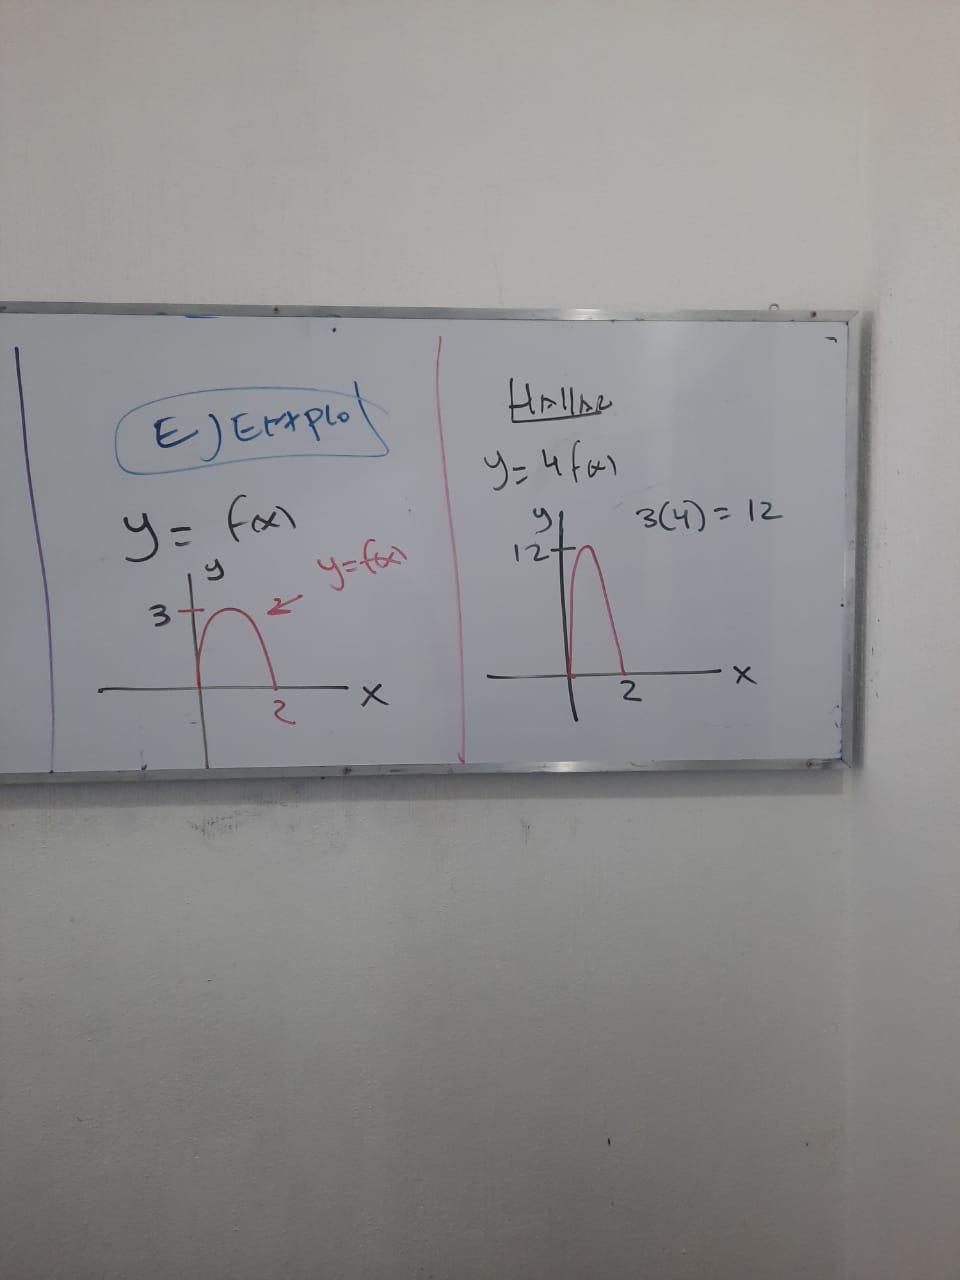 E) Ejemplo
y = f(x)
y
y=f(x)
3
2
x
Hallar
y = 4f(x)
3(4) = 12
y
12
2
x